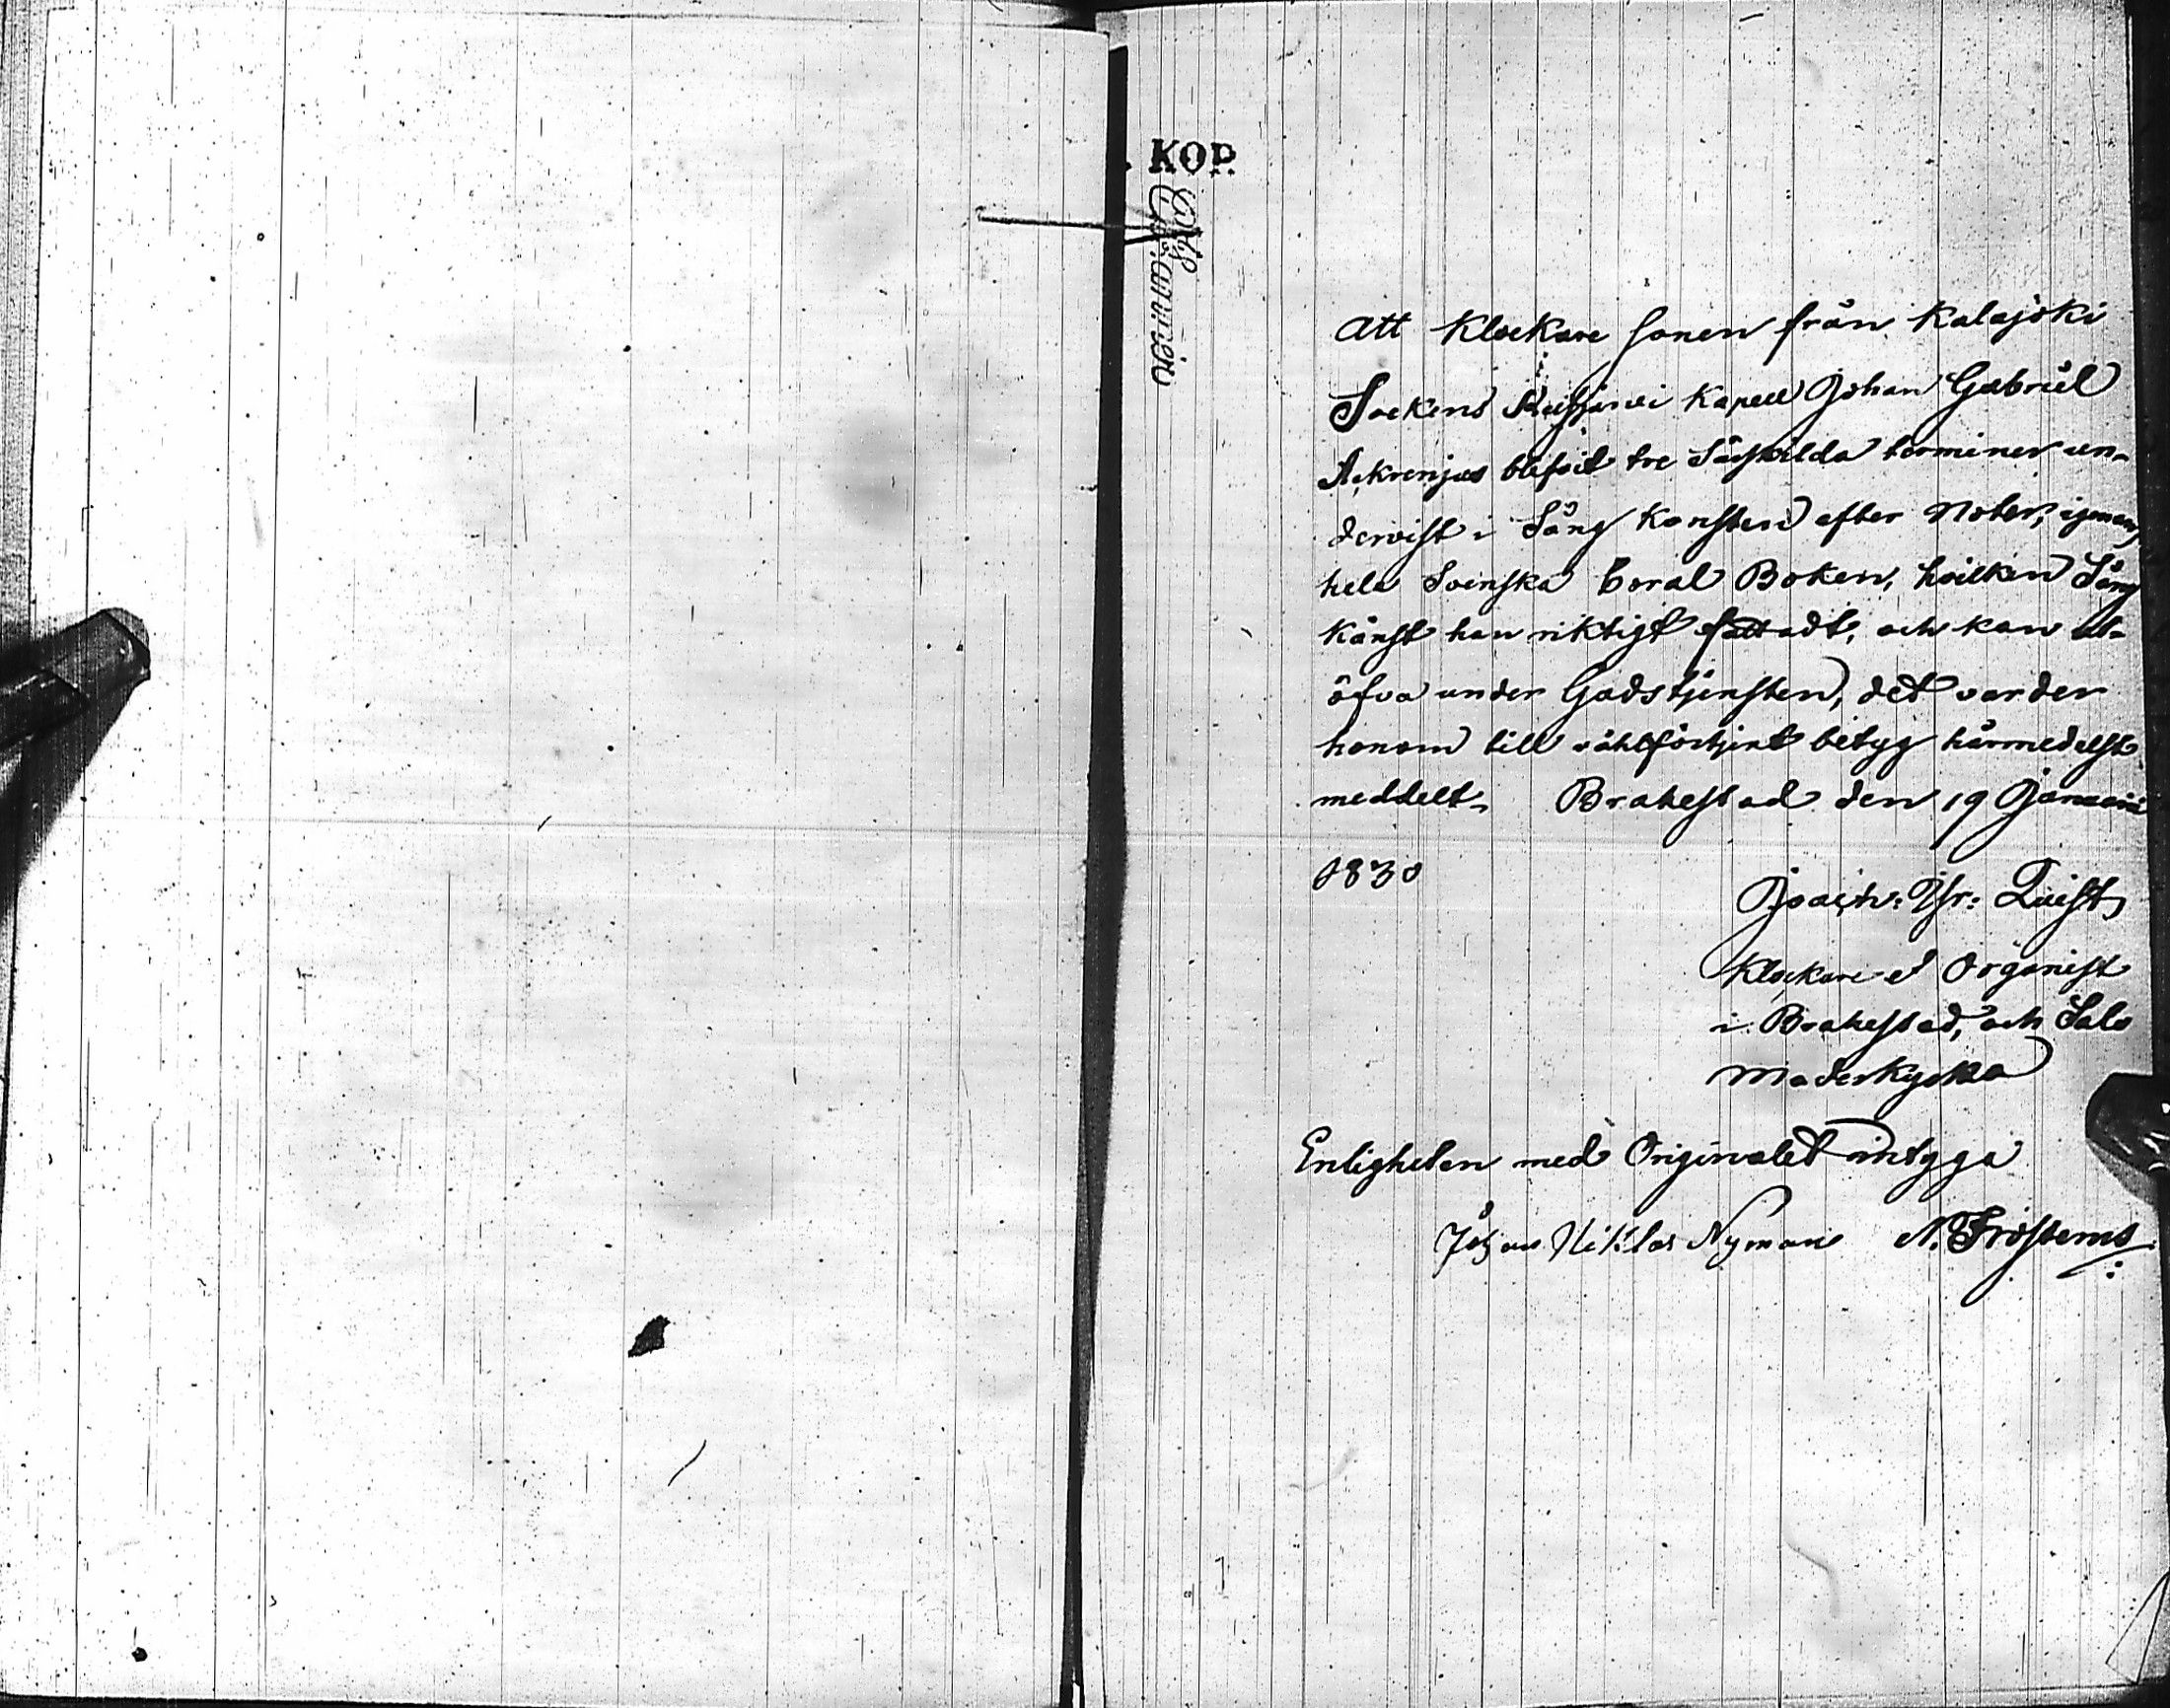 KOP.
Att Klockare Sonen från Kalajoki
Sockens Reisjärvi Kapell Johan Gabriel
Ackrenjus blifvit tre Särskilda terminer un-
dervist i Sång Konsten efter Noter, igenom
hela Svenska Coral Boken, hvilken Sång
Kånst han riktigt fattadt, och kan ut-
öfva under Gudstjensten, det varder
honom till vählförtjent betyg härmedelst
meddelt. Brahestad den 19 Januarii
1830
Joach: Isr: Quist
Klockare et Organist
i Brahestad, och Salo
Moderkyrka
Enligheten med Originalet intyga
Johan Niklas Nyman N. Frosterus